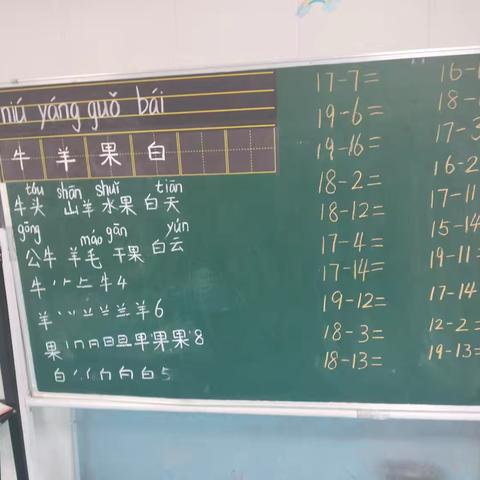 niú yáng guǒ bái
牛 羊 果 白
tóu shān shuǐ tiān
牛头 山羊 水果 白天
gōng máo gān yún
公牛 羊毛 干果 白云
牛 牛4
羊 羊6
果 日 旦 早 果8
白 白5
17-7=
19-6=
19-16=
18-2=
18-12=
17-4=
17-14=
19-12=
18-3=
18-13=
16-
18-
17-3
16-2
17-11
15-14
19-11=
17-14
12-2=
19-13=